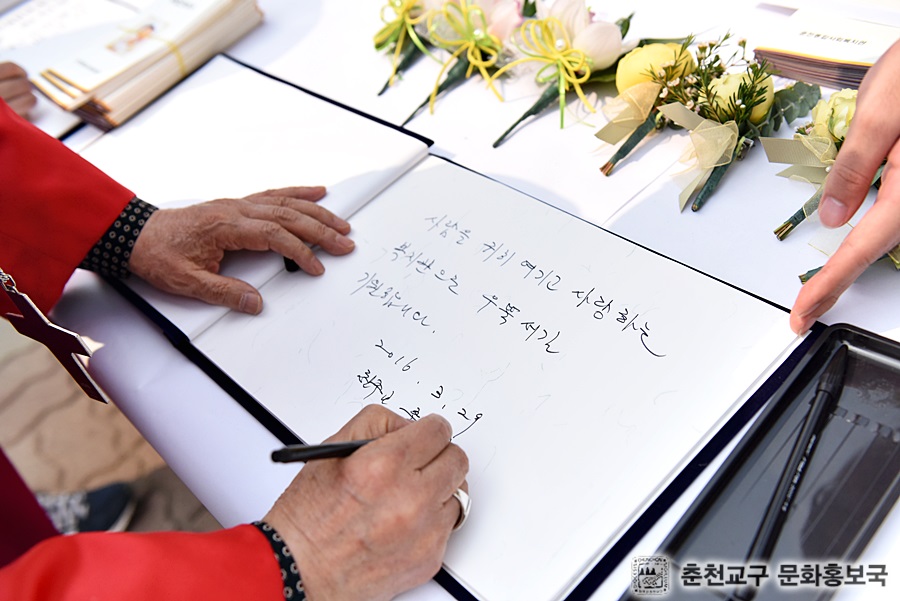 사람을 귀히 여기고 사랑하는
복지관으로 우뚝 서길
기원합니다.
2016. 3. 29
춘천교구 문화홍보국